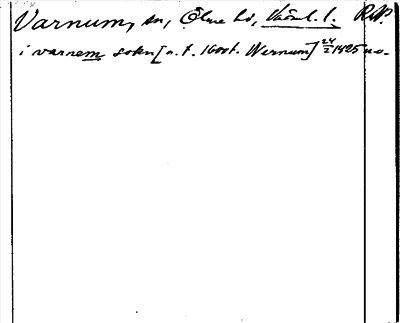 Varnum, sn, Ölme hd, Värml. l. RAP.
i varnem sokn [a. t. 1600t. Wernum] 24/2 1425 u.o.